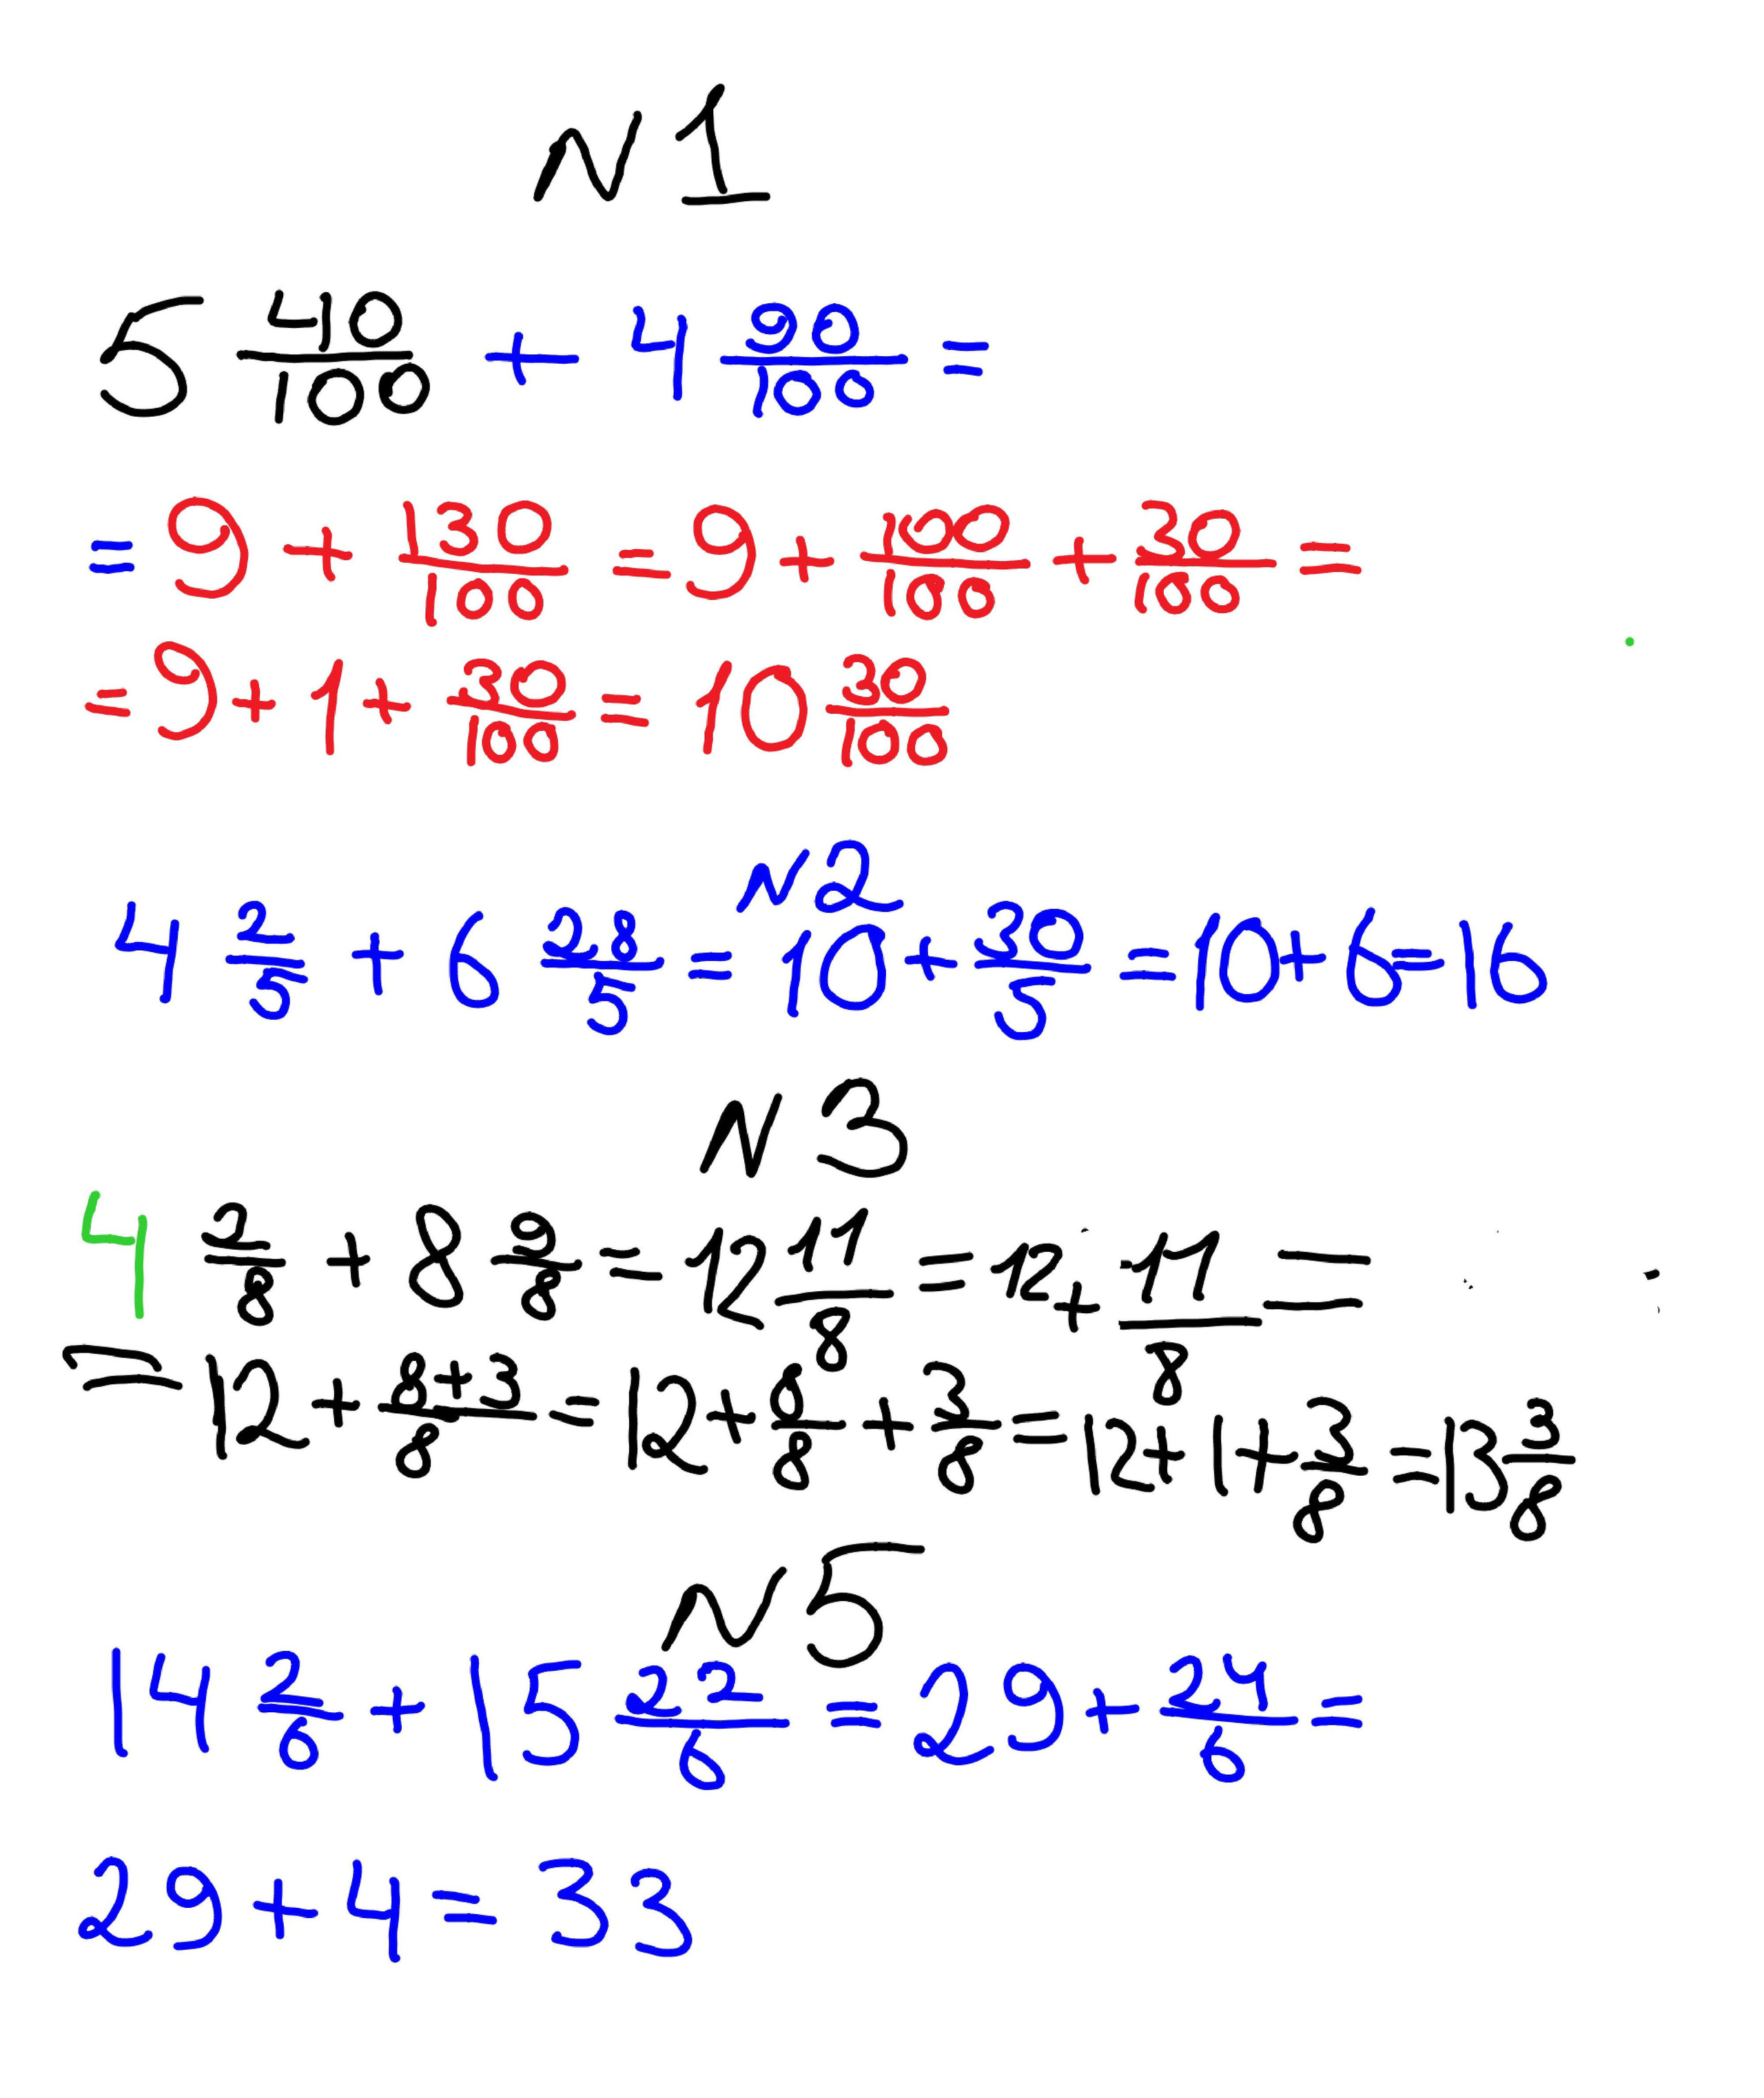 N 1
5 40/100 + 4 90/100 =
= 9 + 130/100 = 9 + 100/100 + 30/100 =
= 9 + 1 + 30/100 = 10 30/100
N2
4 2/5 + 6 28/5 = 10 + 30/5 = 10 + 6 = 16
N 3
4 2/8 + 8 9/8 = 12 11/8 = 12 + 11/8 =
= 12 + 8+3/8 = 12 + 8/8 + 3/8 = 12 + 1 + 3/8 = 13 3/8
N 5
14 2/6 + 15 22/6 = 29 + 24/6 =
29 + 4 = 33